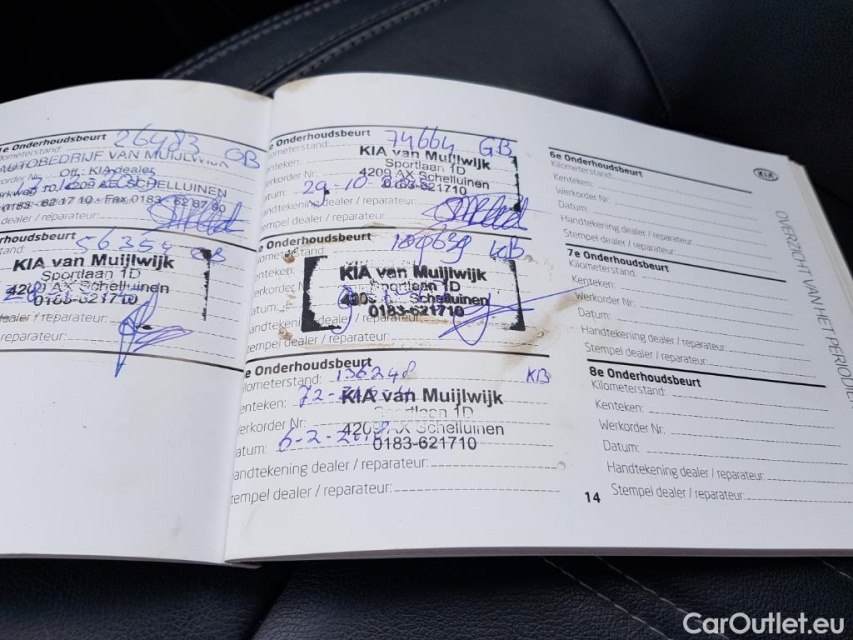 e Onderhoudsbeurt 26483 GB
AUTOBEDRIJF VAN MUIJLWIJK
Off. KIA dealer
4209 AX SCHELLUINEN
0183 - 62 17 10 - Fax 0183 - 62 87 80
dealer / reparateur:
rhoudsbeurt
56354
KIA van Muijlwijk
Sportlaan 1D
4209 AX Schelluinen
0183-621710
dealer / reparateur:
reparateur:
e Onderhoudsbeurt 74664 GB
Kilometerstand:
KIA van Muijlwijk
Kenteken:
Sportlaan 1D
4209 AX Schelluinen
29-10
0183-621710
Handtekening dealer / reparateur:
Stempel dealer / reparateur:
e Onderhoudsbeurt
KIA van Muijlwijk
Kenteken:
Sportlaan 1D
4209 AX Schelluinen
0183-621710
dealer / reparateur:
Stempel dealer / reparateur:
e Onderhoudsbeurt
Kilometerstand: 136248 KB
KIA van Muijlwijk
enteken: 72-
Sportlaan 1D
erkorder Nr:
4209 AX Schelluinen
atum: 6-2-
0183-621710
andtekening dealer / reparateur:
tempel dealer / reparateur:
6e Onderhoudsbeurt
Kilometerstand:
Kenteken:
Werkorder Nr:
Datum:
Handtekening dealer / reparateur:
Stempel dealer / reparateur:
7e Onderhoudsbeurt
Kilometerstand:
Kenteken:
Werkorder Nr:
Datum:
Handtekening dealer / reparateur:
Stempel dealer / reparateur:
8e Onderhoudsbeurt
Kilometerstand:
Kenteken:
Werkorder Nr:
Datum:
Handtekening dealer / reparateur:
Stempel dealer / reparateur:
14
KIA
OVERZICHT VAN HET PERIODIE
CarOutlet.eu